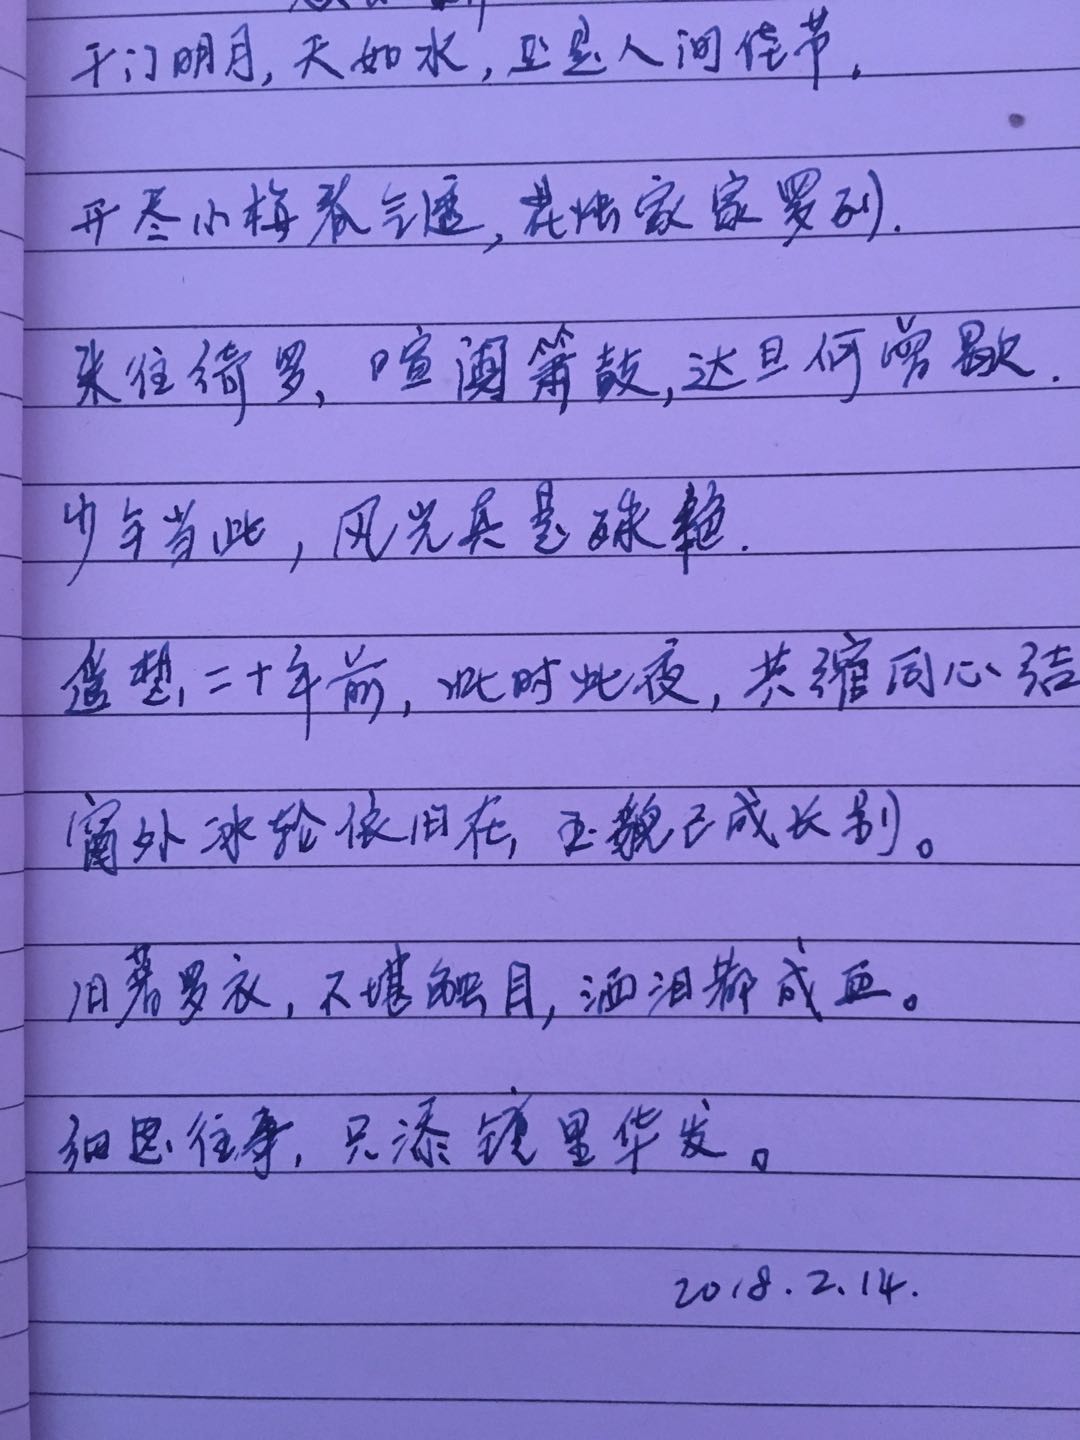 千门明月,天如水,正是人间佳节.
开尽小梅春气透,花烛家家罗列.
来往绮罗,喧阗箫鼓,达旦何曾歇.
少年当此,风光真是殊艳.
遥想二十年前,此时此夜,共绾同心结
窗外冰轮依旧在,玉貌已成长别。
旧著罗衣,不堪触目,洒泪都成血。
细思往事,只添镜里华发。
2018.2.14.